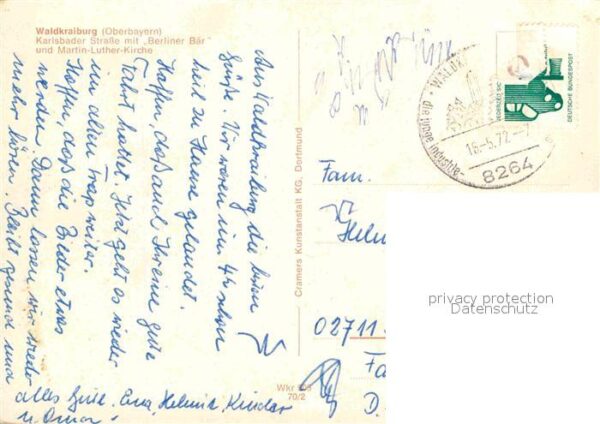 Waldkraiburg (Oberbayern)
Karlsbader Straße mit „Berliner Bär"
und Martin-Luther-Kirche
Aus Waldkraiburg die lieben
Grüße. Wir waren um 4h schon
heil zu Hause gelandet.
Hoffen, daß auch Ihr eine gute
Fahrt hattet. Jetzt geht es wieder
im alten Trap weiter.
Hoffen, daß die Bilder etwas
werden. Dann lassen wir wieder
mehr hören. Bleibt gesund und
alles Gute. Eure Helmut, Kinder
u. Oma.
Wkr
70/2
Cramers Kunstanstalt KG. Dortmund
WALDK
die junge Industrie-
16.-5.72.-7
8264
DEUTSCHE BUNDESPOST
JEDERZEIT SIC
Fam.
Helm
02711
Fa
D.
privacy protection
Datenschutz